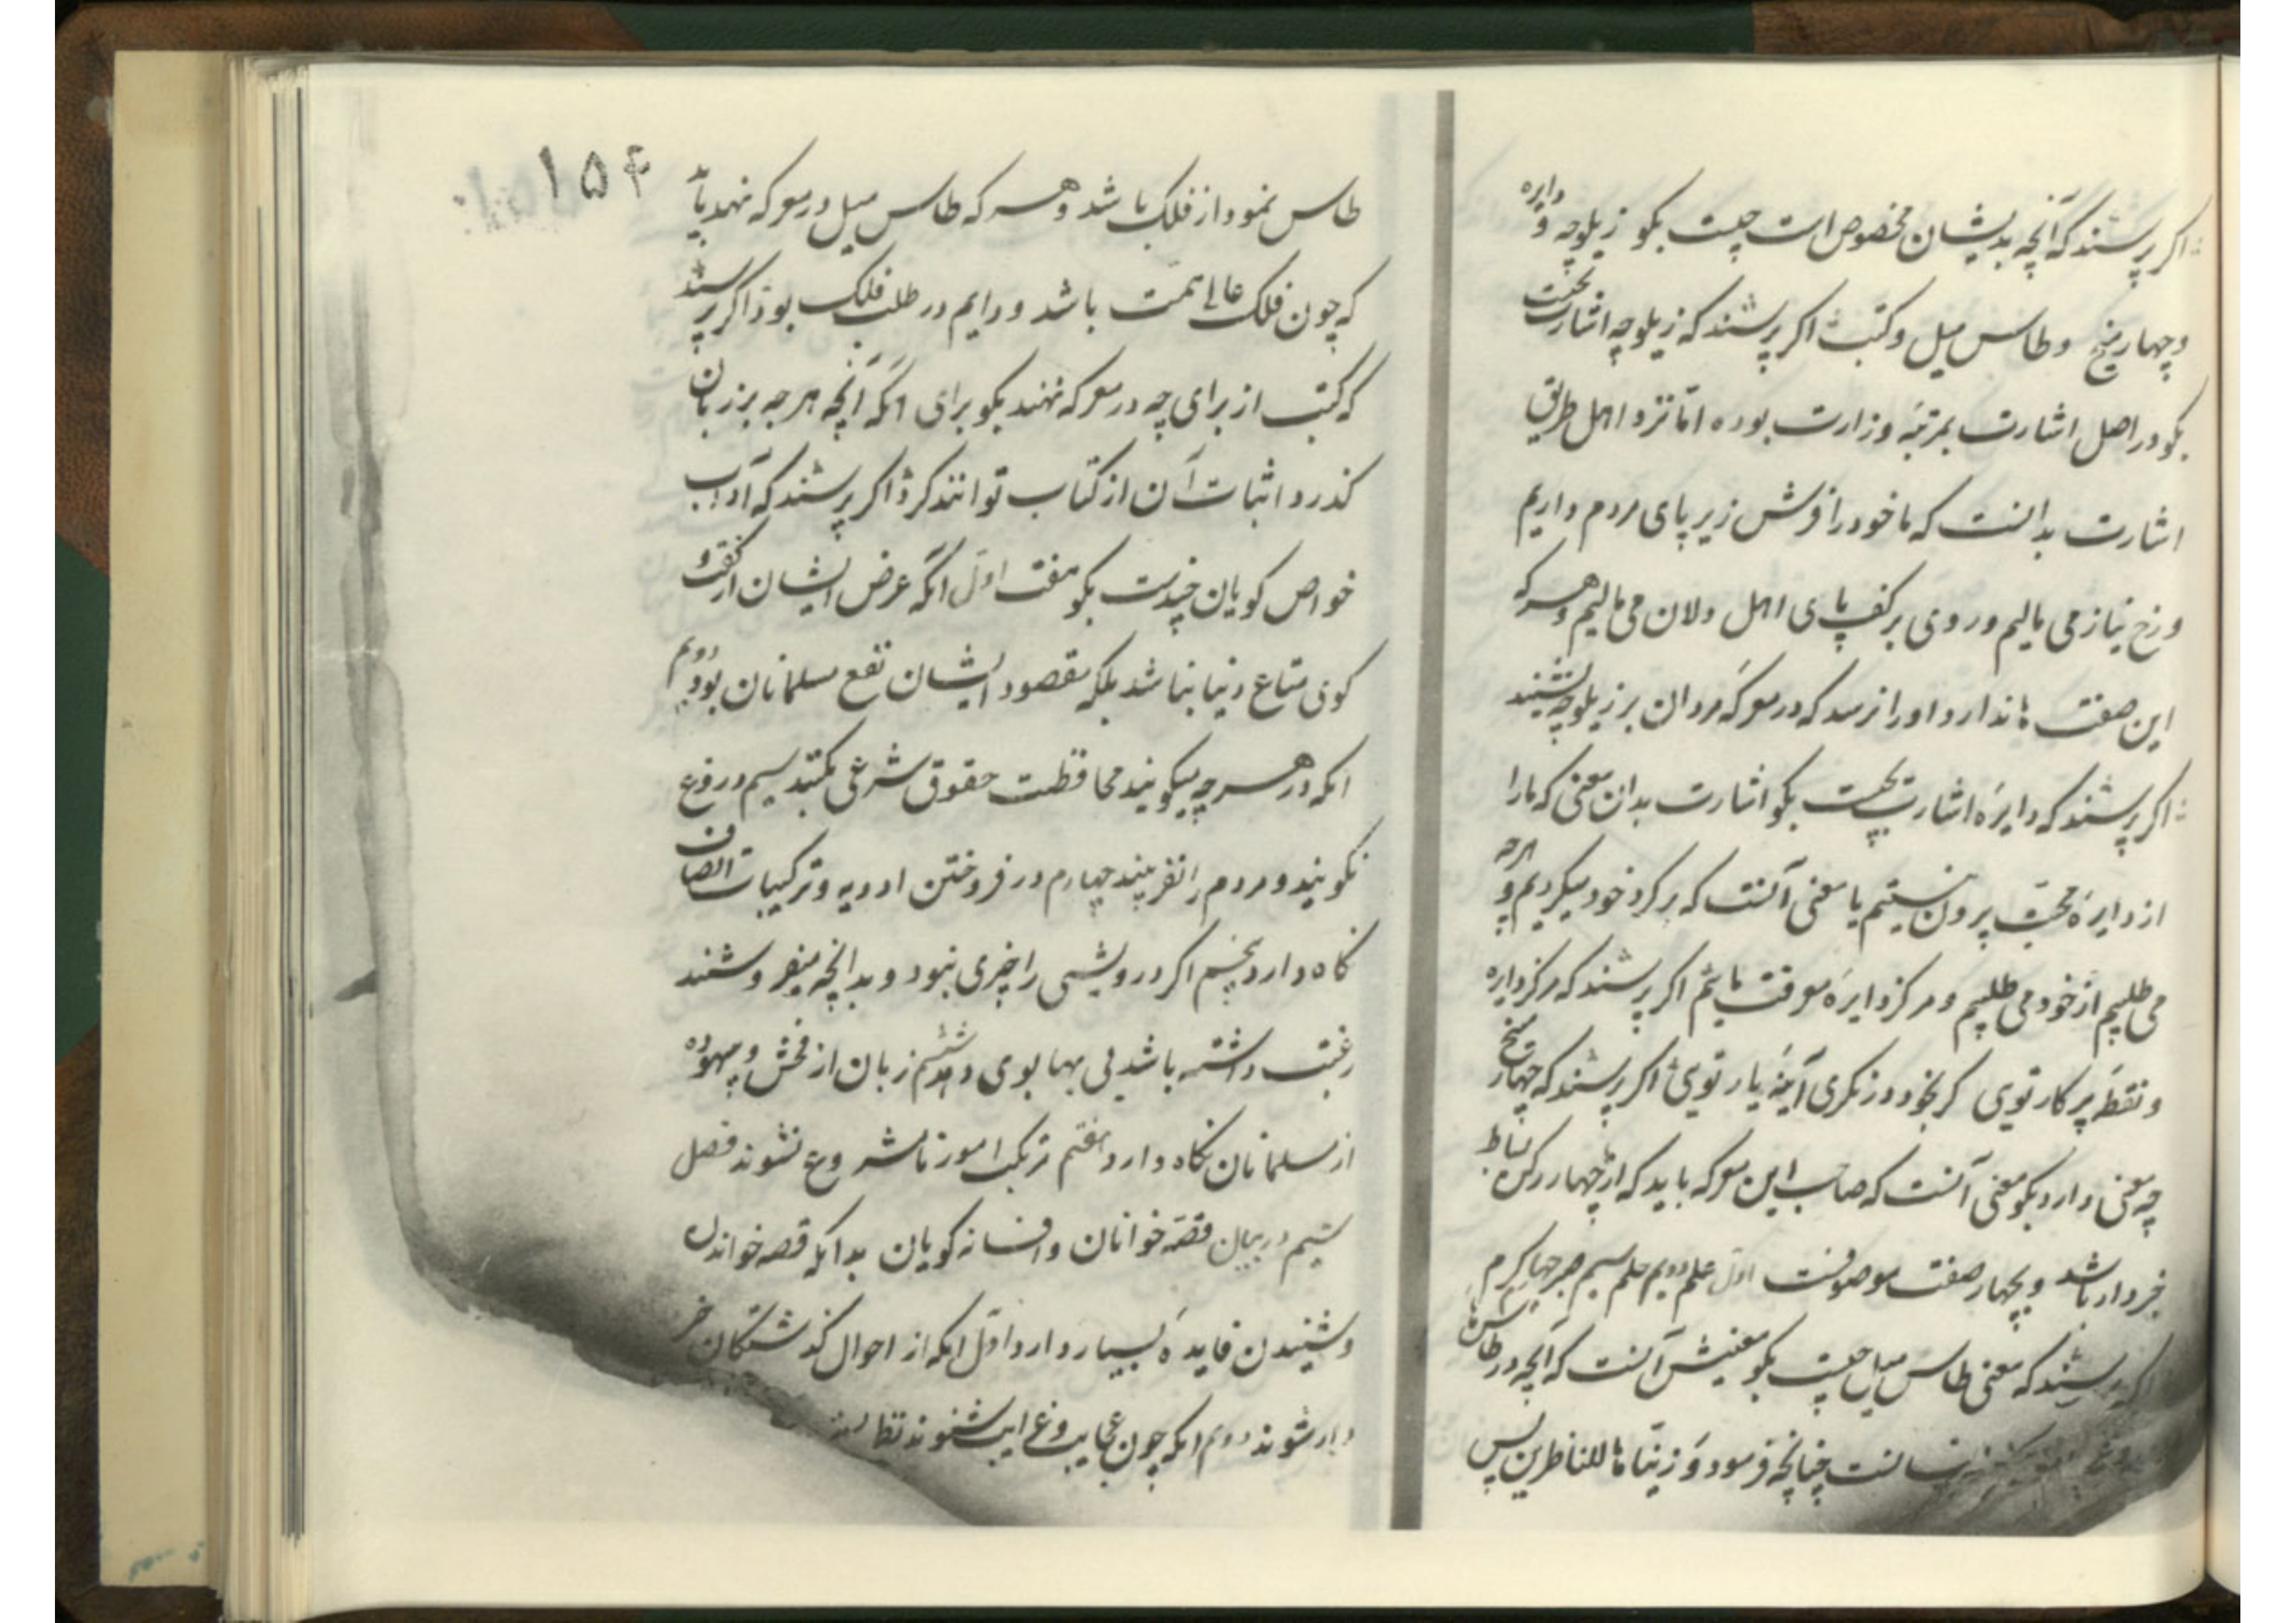 اکر پرسند که آنچه بدیشان مخصوص است چیست بکو زیلوچه و دایره
و چهار میخ و طاس میل و کتب اکر پرسند که زیلوچه اشارت بچیست
بکو در اصل اشارت بمرتبهٔ وزارت بوده امّا نزد اهل طریق
اشارت بدانست که ما خود را فرش زیر پای مردم داریم
و رخ نیاز می مالیم و روی بر کف پای اهل دلان می مالیم و هر که
این صفت ها ندارد او را نرسد که در معرکهٔ مردان بر زیلوچه نشیند
اکر پرسند که دایرهٔ اشارت بچیست بکو اشارت بدان معنی که ما را
از دایرهٔ محبّت بیرون نیستیم یا معنی آنست که بر کرد خود میکردیم و هرچه
می طلبیم از خود می طلبیم و مرکز دایرهٔ معرفت مائیم اکر پرسند که مرکز دایره
و نقطهٔ پرکار تویی کر بخود در نکری آینهٔ یار تویی اکر پرسند که چهار میخ
چه معنی دارد بکو معنی آنست که صاحب این معرکه باید که از چهار رکن بساط
خبردار باشد و بچهار صفت موصوفست اول علم دویم حلم سیم صبر چهارم کرم
اکر پرسند که معنی طاس میل چیست بکو معنیش آنست که آنچه در طاس
چنانچه فرمود وَ زینّا ها للناظرین پس
۱۵۴
طاس نمودار فلک باشد و هر که طاس میل در معرکه نهد باید
که چون فلک عالی همّت باشد و دایم در طلب فلک بود اکر پرسند
که کتب از برای چه در معرکه نهند بکو برای انکه آنچه هر چه بر زبان
کذرد اثبات آن از کتاب توانند کرد اکر پرسند که آداب
خواص کویان چندست بکو هفت اول انکه عرض ایشان از کفت و
کوی متاع دنیا نباشد بلکه مقصود ایشان نفع مسلمانان بود دویم
انکه در هر چه میکویند محافظت حقوق شرعی بکنند سیم دروغ
نکویند و مردم را نفریبند چهارم در فروختن ادویه و ترکیبات انصاف
نکاه دارد پنجم اکر درویشی را چیزی نبود و بدانچه میفروشند
رغبت داشته باشد بی بها بوی دهد ششم زبان از فحش و بیهوده
از مسلمانان نکاه دارد هفتم مرتکب امور نامشروع نشوند فصل
سیم در بیان قصّه خوانان و افسانه کویان بدانکه قصه خواندن
و شنیدن فایدهٔ بسیار دارد اوّل انکه از احوال کذشتکان خبر
دار شوند دویم انکه چون عجایب و غرایب شنوند